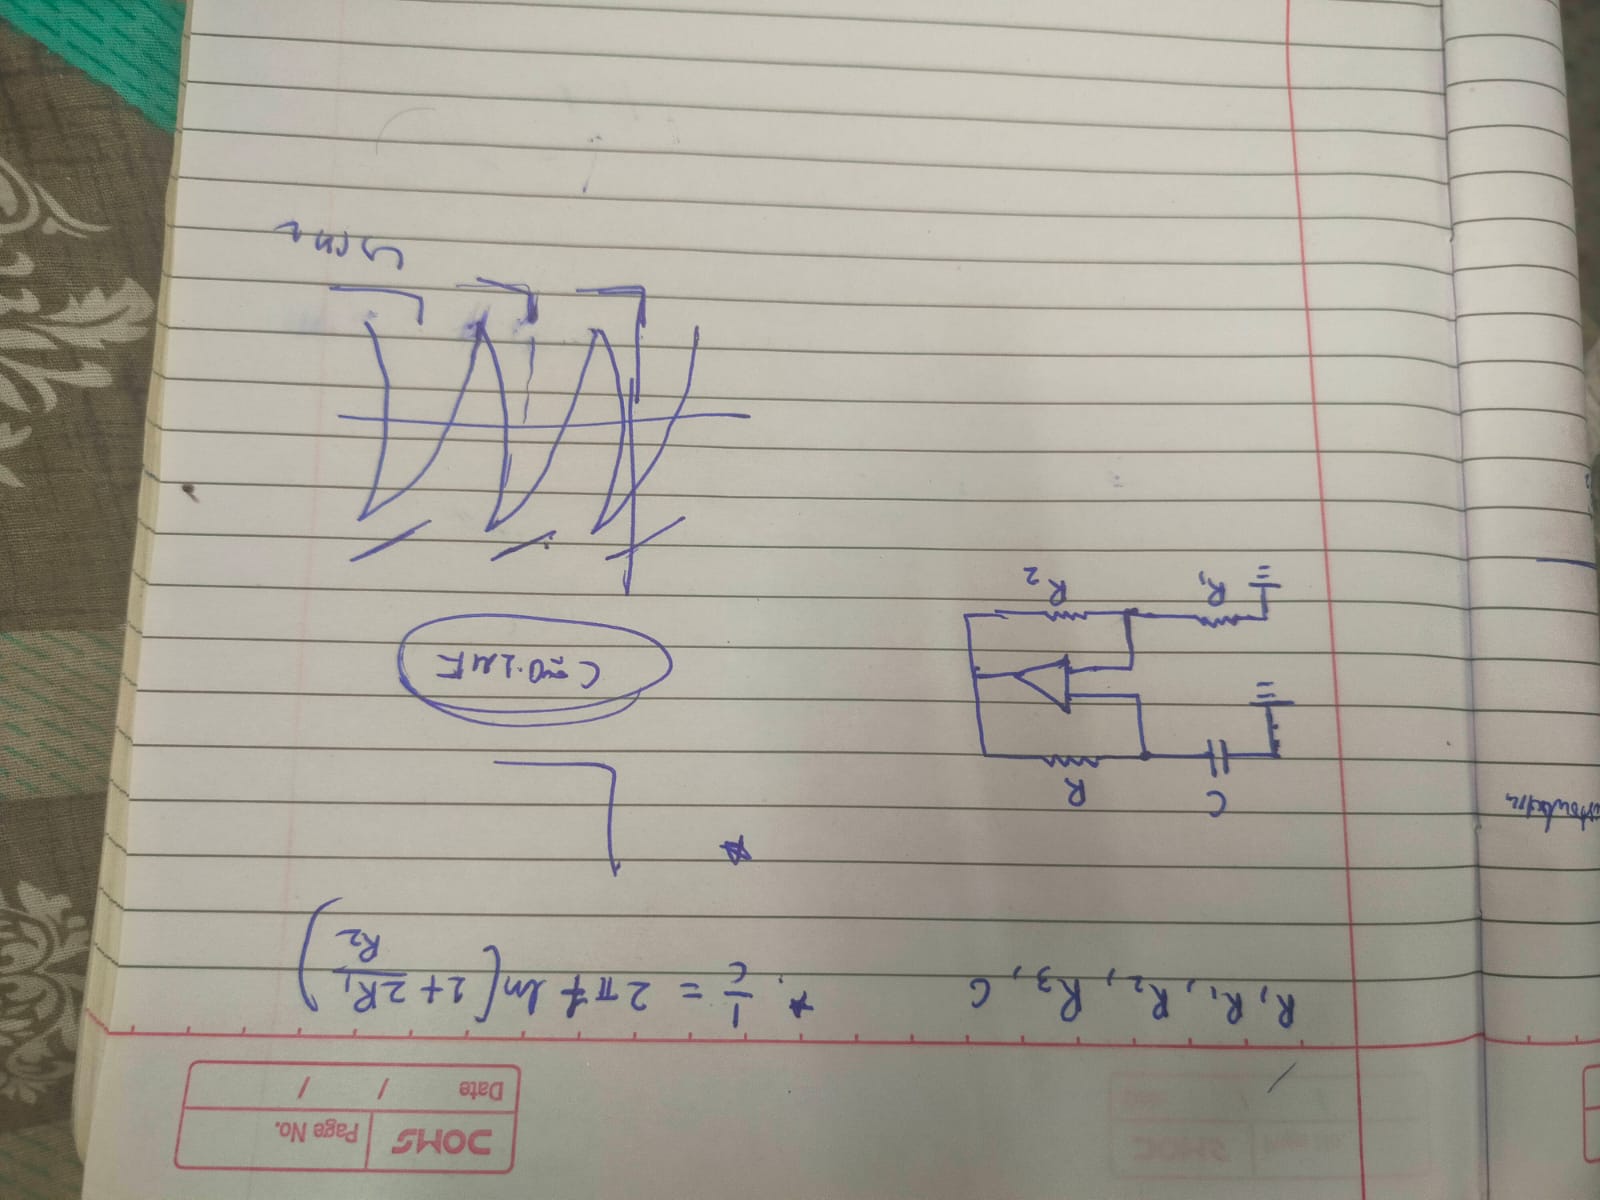 DOMS Page No.
Date / /
R, R₁, R₂, R₃, C
*. 1/C = 2πf ln[1 + 2R₁/R₂)
C R
C=0.1μF
R₁ R₂